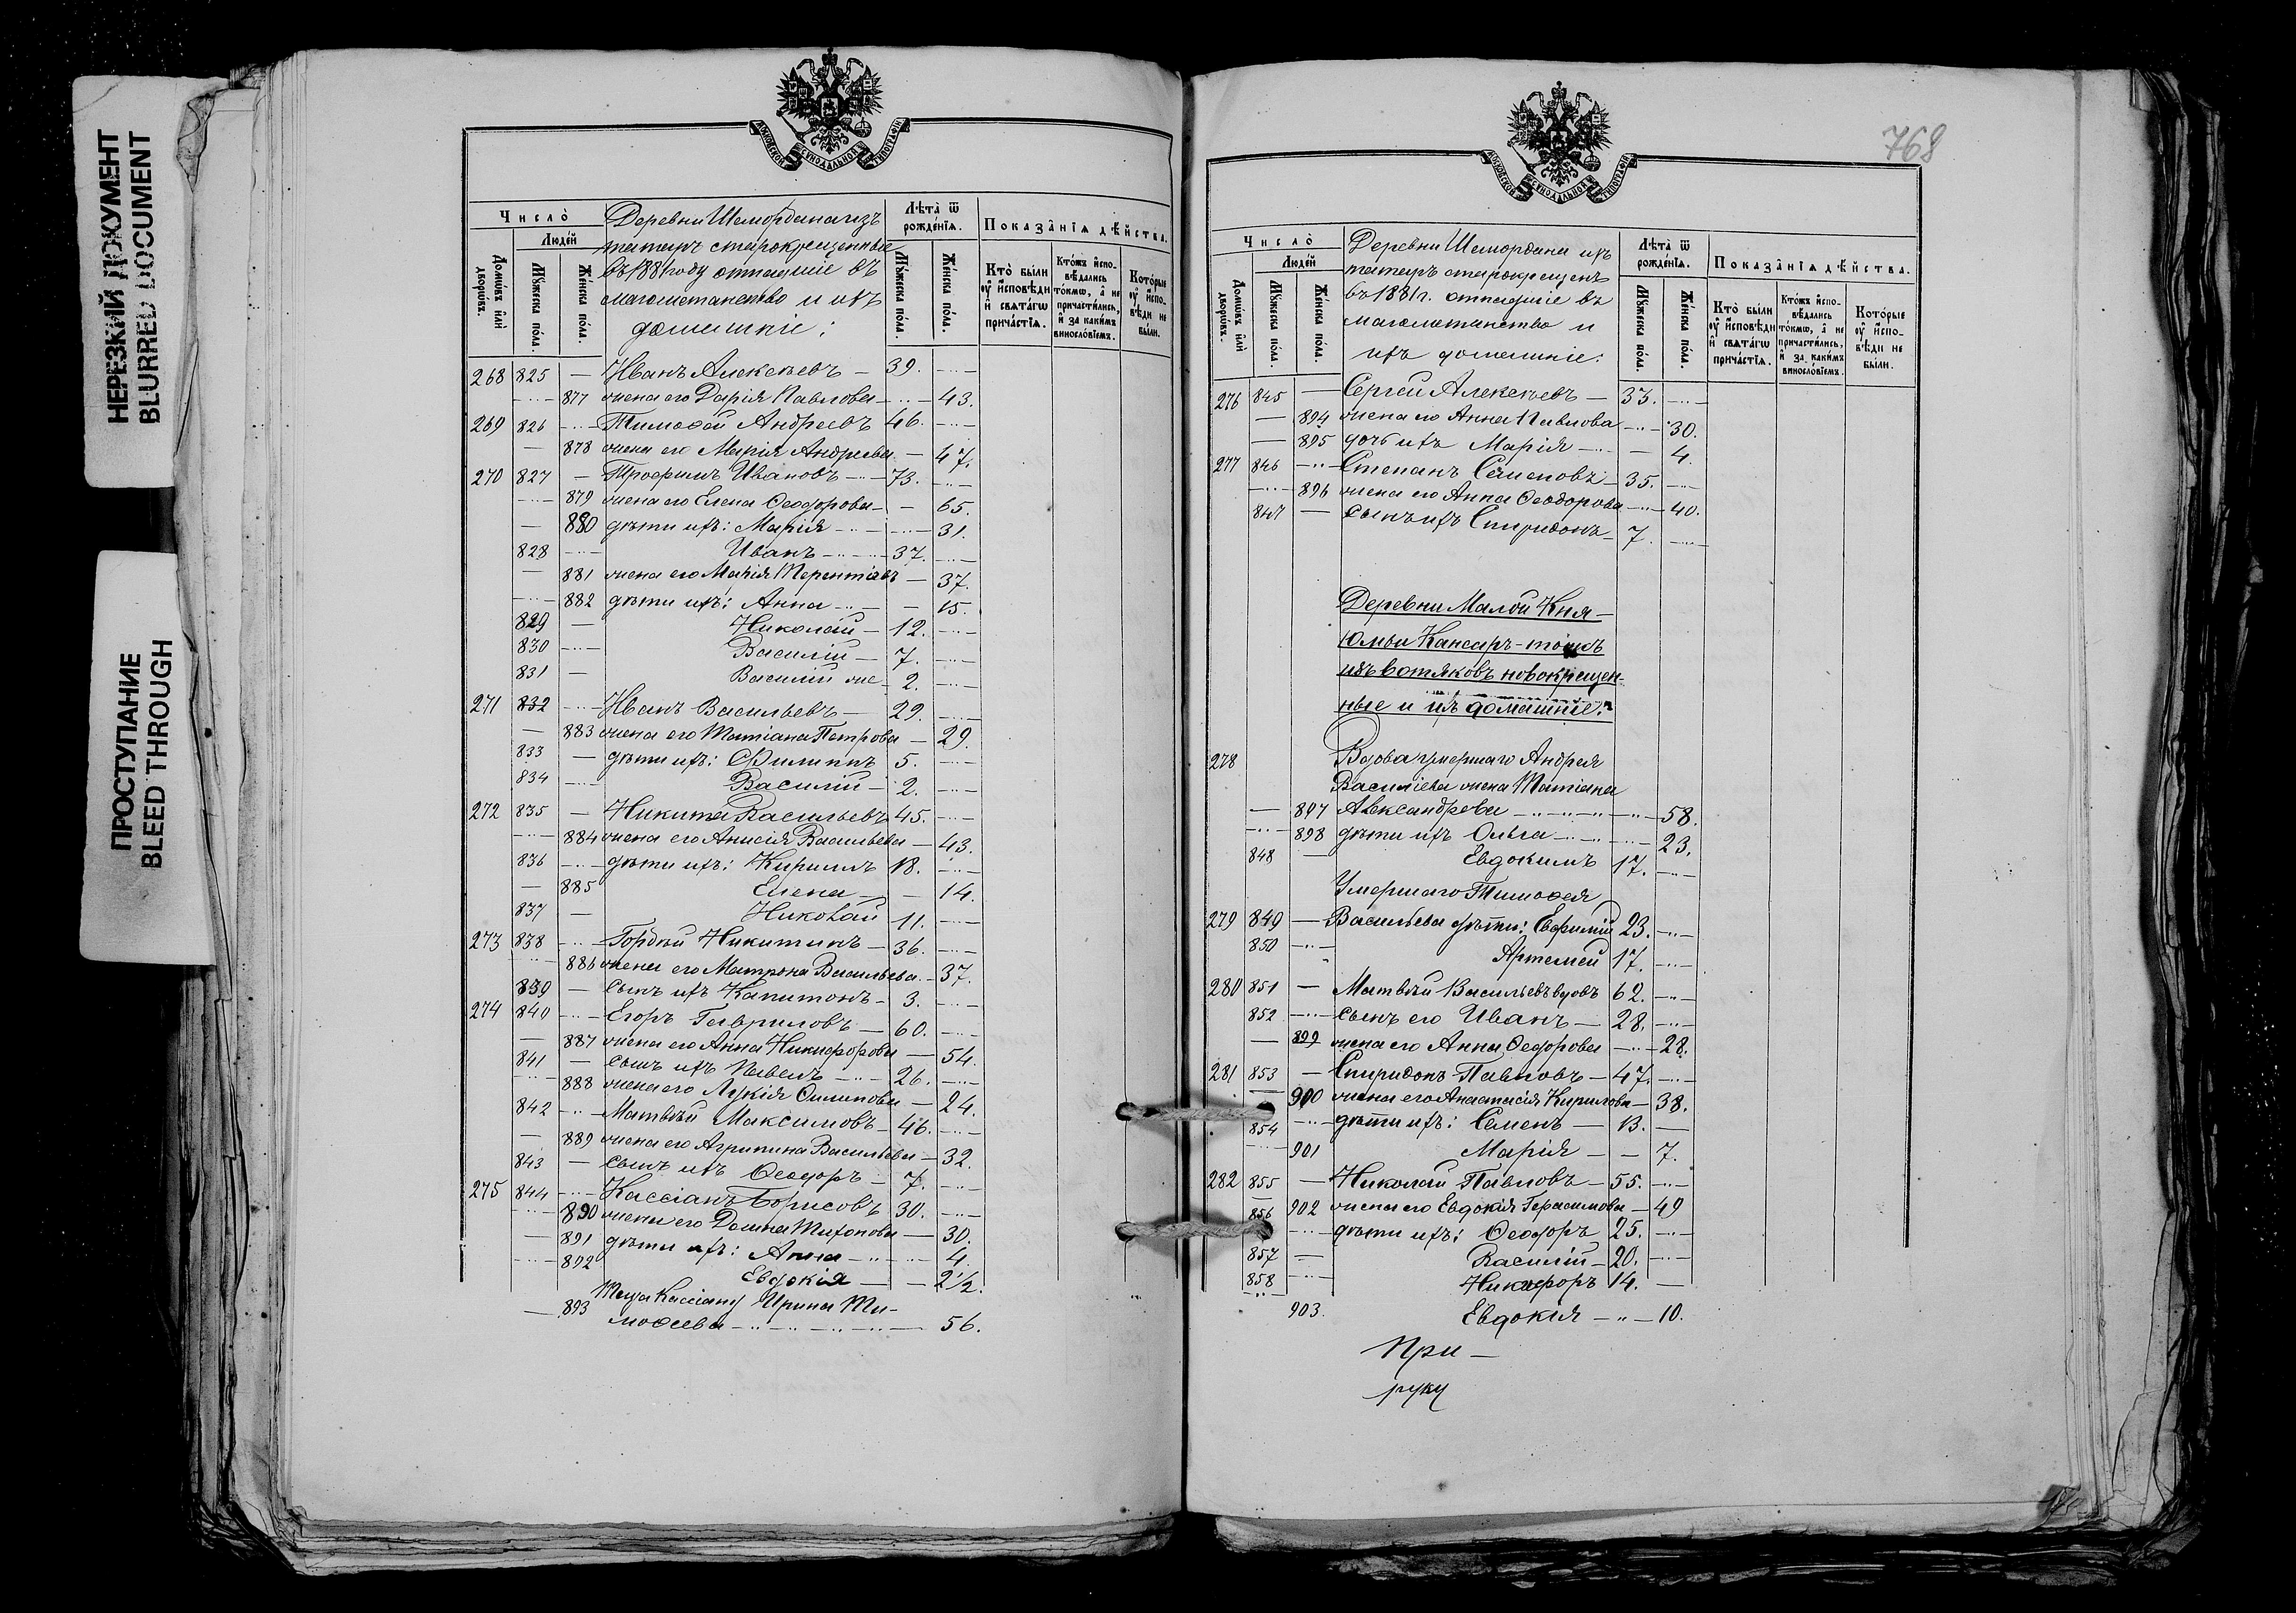 НЕРЕЗКИЙ ДОКУМЕНТ
BLURRED DOCUMENT
ПРОСТУПАНИЕ
BLEED THROUGH
МОСКОВСКОЙ СѴНОДАЛЬНОЙ ТИПОГРАФІИ
Число̀
Людей
Домѡвъ и҆лѝ дворѡвъ.
Мꙋ́жеска по́ла.
Же́нска по́ла.
Деревни Шемордана изъ
татаръ старокрещенные
въ 1881 году отпадшіе въ
магометанство и ихъ
домашніе:
Лѣта̀ ѿ рожде́нїѧ.
Мꙋ́жеска по́ла.
Же́нска по́ла.
Показа̂нїѧ дѣ́йства.
Кто̀ были ᲂу҆ и҆сповѣди и҆ свѧта́гѡ прича́стїѧ.
Кто́жъ и҆спо-вѣдались то́кмѡ, а҆ не причасти́лись, и҆ за каки́мъ виносло́вїемъ.
Кото́рые ᲂу҆ и҆спо-вѣди не были.
268 825 — Иванъ Алексѣевъ — 39. —
— 877 жена его Дарія Павлова — 43.
269 826 — Тимоѳей Андреевъ 46. —
— 878 жена его Марія Андреева — 47.
270 827 — Трофимъ Ивановъ — 73. —
— 879 жена его Елена Ѳеодорова — 65.
— 880 дѣти ихъ: Марія — 31.
828 — Иванъ — 37. —
— 881 жена его Марія Терентіева — 37.
— 882 дѣти ихъ: Анна — 15.
829 — Николай — 12. —
830 — Василій — 7. —
831 — Василій же 2. —
271 832 — Иванъ Васильевъ — 29. —
— 883 жена его Татіана Петрова — 29.
833 — дѣти ихъ: Филиппъ 5. —
834 — Василій — 2. —
272 835 — Никита Васильевъ 45. —
— 884 жена его Анисія Васильева — 43.
836 — дѣти ихъ: Кириллъ 18. —
— 885 Елена — 14.
837 — Николай 11. —
273 838 — Гордѣй Никитинъ — 36. —
— 886 жена его Матрона Васильева — 37.
839 — сынъ ихъ Капитонъ — 3. —
274 840 — Егоръ Гавриловъ — 60. —
— 887 жена его Анна Никифорова — 54.
841 — сынъ ихъ Павелъ — 26. —
— 888 жена его Лукія — 24.
842 — Матвѣй Максимовъ — 46. —
— 889 жена его Агрипина Васильева — 32.
843 — сынъ ихъ Ѳеодоръ — 7. —
275 844 — Кассіанъ Борисовъ 30. —
— 890 жена его Домна Тихонова — 30.
— 891 дѣти ихъ: Анна — 4.
— 892 Евдокія — 2½.
Теща Кассіану Ирина Ти-
— 893 моѳеева — 56.
768
МОСКОВСКОЙ СѴНОДАЛЬНОЙ ТИПОГРАФІИ
Число̀
Людей
Домѡвъ и҆лѝ дворѡвъ.
Мꙋ́жеска по́ла.
Же́нска по́ла.
Деревни Шемордана изъ
татаръ старокрещенъ
въ 1881 г. отпадшіе въ
магометанство и
ихъ домашніе:
Лѣта̀ ѿ рожде́нїѧ.
Мꙋ́жеска по́ла.
Же́нска по́ла.
Показа̂нїѧ дѣ́йства.
Кто̀ были ᲂу҆ и҆сповѣди и҆ свѧта́гѡ прича́стїѧ.
Кто́жъ и҆спо-вѣдались то́кмѡ, а҆ не причасти́лись, и҆ за каки́мъ виносло́вїемъ.
Кото́рые ᲂу҆ и҆спо-вѣди не были.
276 845 — Сергей Алексѣевъ — 33. —
— 894 жена его Анна Павлова — 30.
— 895 дочь ихъ Марія — 4.
277 846 — Степанъ Семеновъ — 35. —
— 896 жена его Анна Ѳеодорова — 40.
847 — сынъ ихъ Спиридонъ — 7. —
Деревни Малой Кня-
Юмьи
изъ вотяковъ новокрещен-
ные и ихъ домашніе:
278 Вдова умершаго Андрея
Васильева жена Татіана
— 897 Александрова — 58.
— 898 дѣти ихъ Ольга — 23.
848 — Евдокимъ 17. —
Умершаго Тимоѳея
279 849 — Васильева дѣти: Евфимій 23. —
850 — Артемей 17. —
280 851 — Матвѣй Васильевъ вдовъ 62. —
852 — сынъ его Иванъ — 28. —
— 899 жена его Анна Ѳедорова — 28.
281 853 — Спиридонъ Павловъ — 47. —
— 900 жена его Анастасія Кирилова — 38.
854 — дѣти ихъ: Семенъ — 13. —
— 901 Марія — 7.
282 855 — Николай Павловъ — 55. —
— 902 жена его Евдокія Герасимова — 49
856 — дѣти ихъ: Ѳеодоръ 25. —
857 — Василій — 20. —
858 — Никифоръ 14. —
903. Евдокія — 10.
При —
руку